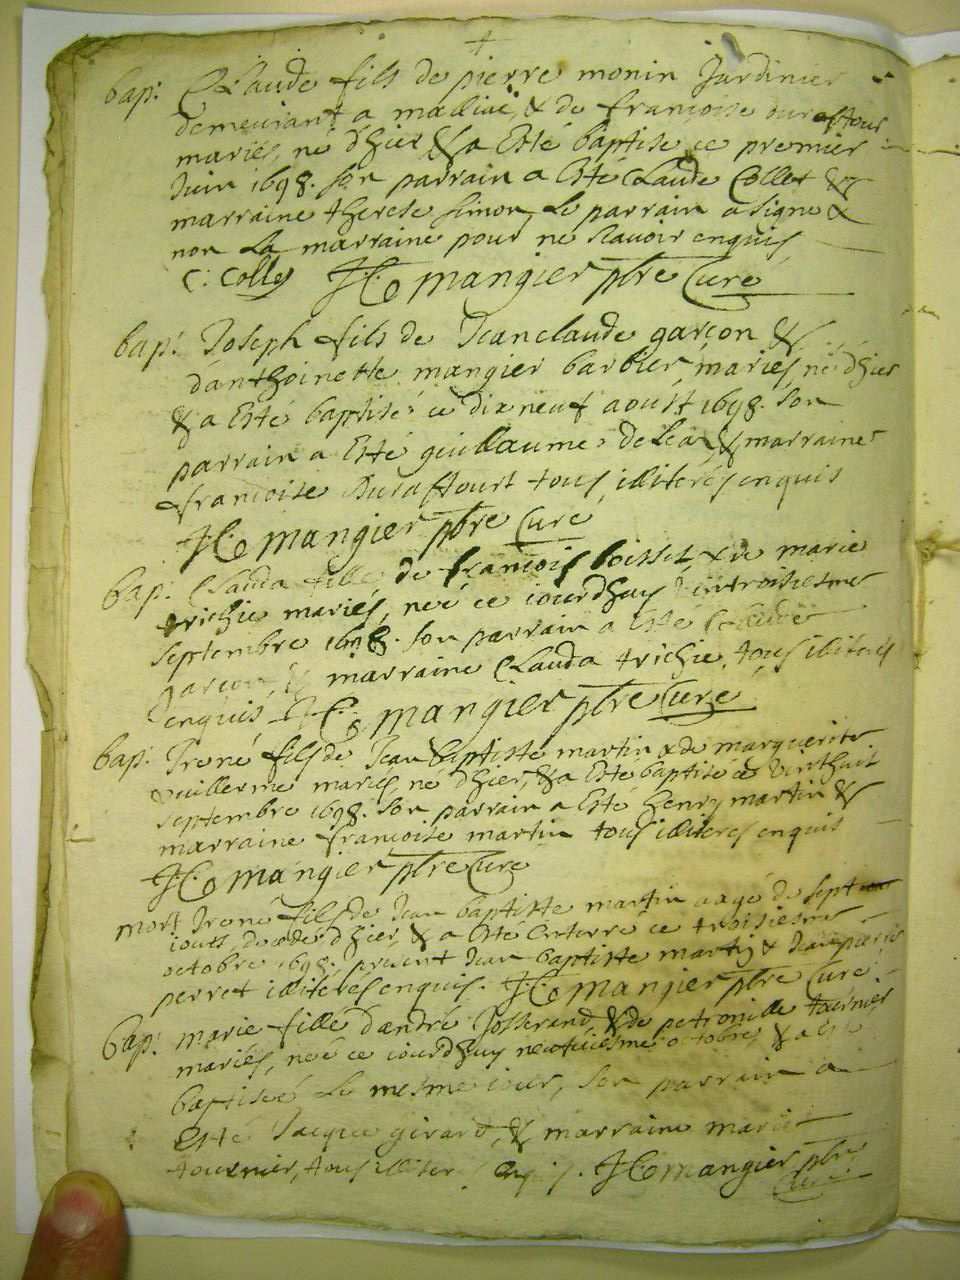 bap: Claude fils de pierre monin Jardinier
demeurant a & de francoise duraffour
mariés, né d'hier & a Esté baptisé ce premier
Juin 1698. son parrain a Esté Claude Collet &
marraine therese simon, Le parrain a signé &
non La marraine pour ne scavoir enquis
C: Collet JC mangier pbre Curé
bap: Joseph fils de Jeanclaude garcon &
d'anthoinette mangier barbier mariés né d'hier
& a Esté baptisé ce dix neuf aoust 1698. son
parrain a Esté guillaume & marraine
francoise Duraffourt tous illiterés enquis
JC mangier pbre Curé
bap: Clauda fille de francois & de marie
trichie mariés, neé ce iourdhuy troisiesme
septembre 1698. son parrain a Esté Claude
garcon, & marraine Clauda trichie, tous illiterés
enquis JC mangier pbre Curé
bap: Irené fils de Jean baptiste martin & de marguerite
vuillerme mariés, né d'hier, & a Esté baptisé ce vinthuit
septembre 1698. son parrain a Esté henry martin &
marraine francoise martin tous illiterés enquis
JC mangier pbre Curé
mort Irené fils de Jean baptiste martin aagé de sept
iours, decedé d'hier, & a Esté Enterré ce troisiesme
octobre 1698. present Jean baptiste martin & Jean pierre
perret illiterés enquis. JC mangier pbre Curé
bap: marie fille d'andré Josserand & de petronille tournier
mariés, neé ce iourdhuy neufuiesme octobre & a Esté
baptiseé Le mesme iour, son parrain a
Esté Jacque girard, & marraine marie
tournier, tous illiter enquis. JC mangier pbre
Curé